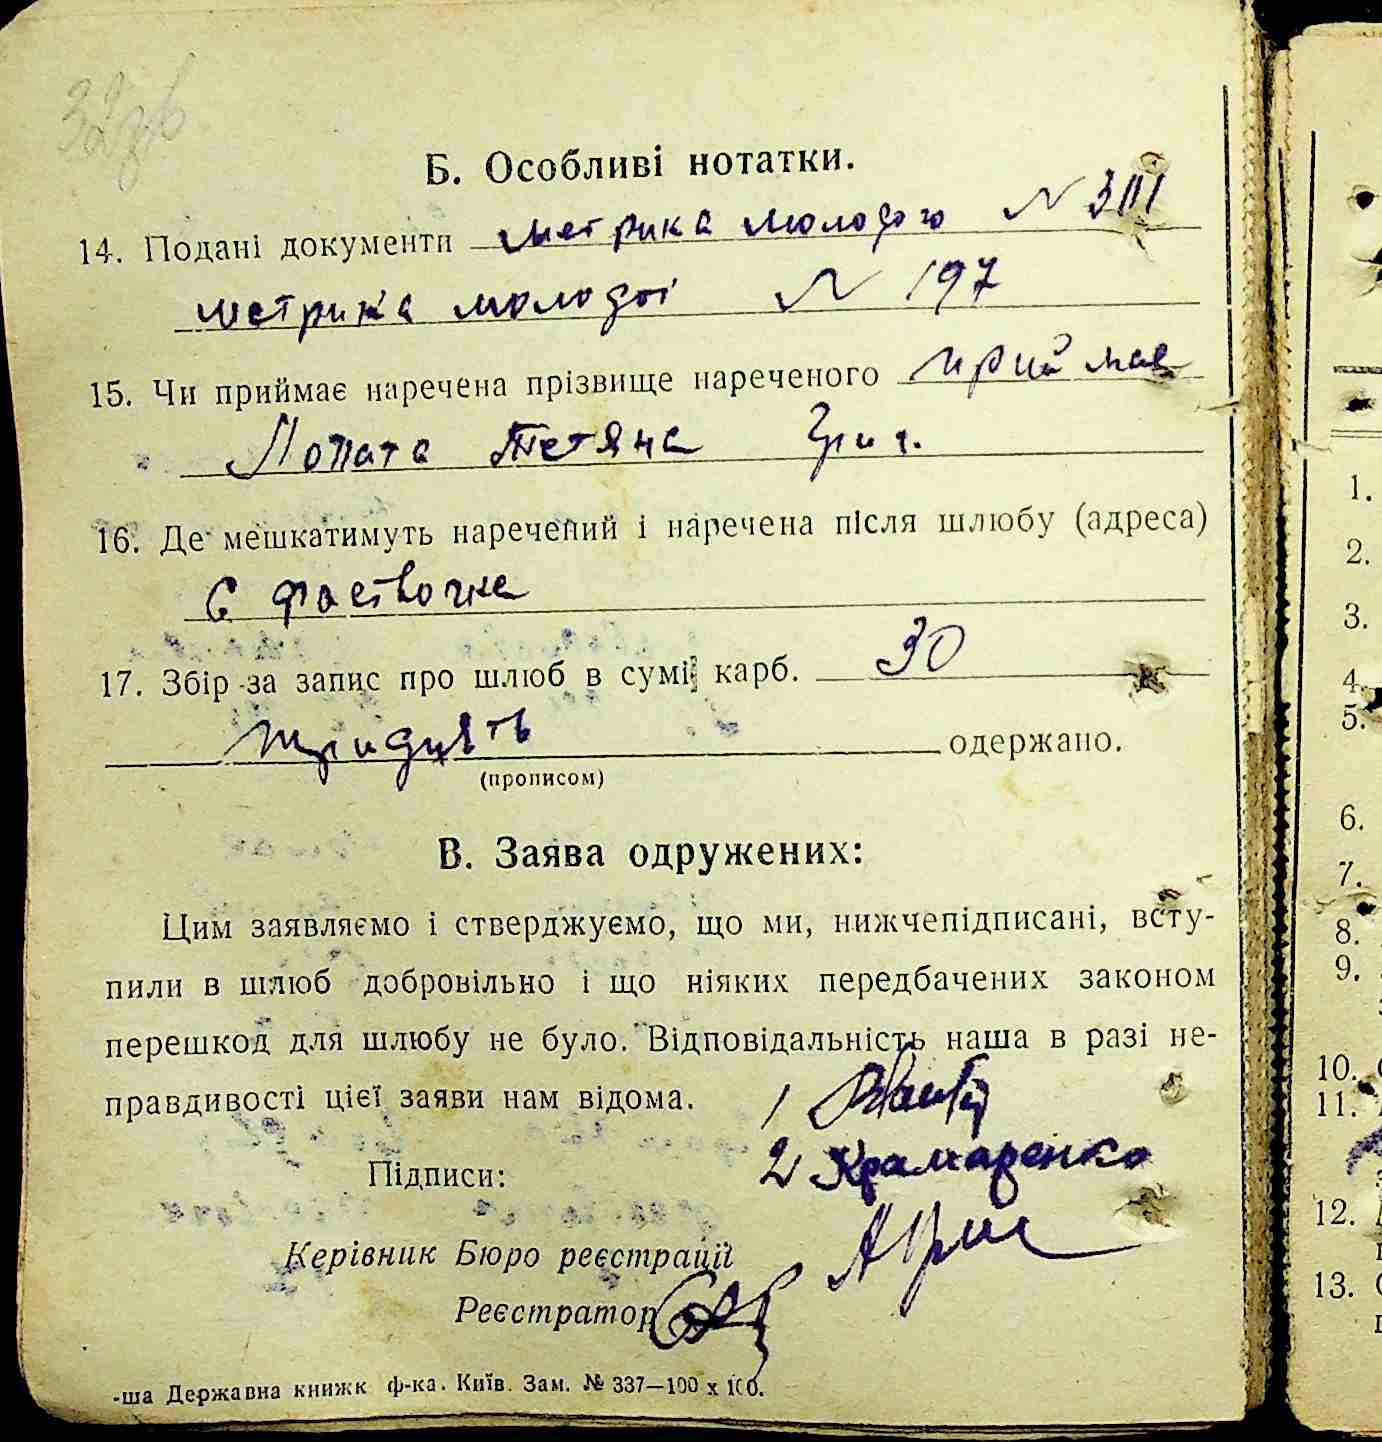 Б. Особливі нотатки.
14. Подані документи метрика молодого N 3111
метрика молодої N 197
15. Чи приймає наречена прізвище нареченого приймає
Лопата Тетяна Григ.
16. Де мешкатимуть наречений і наречена після шлюбу (адреса)
с
17. Збір за запис про шлюб в сумі карб. 30
тридцять одержано.
(прописом)
В. Заява одружених:
Цим заявляємо і стверджуємо, що ми, нижчепідписані, всту-
пили в шлюб добровільно і що ніяких передбачених законом
перешкод для шлюбу не було. Відповідальність наша в разі не-
правдивості цієї заяви нам відома. 1
Підписи: 2 Крамаренко
Керівник Бюро реєстрації
Реєстратор
-ша Державна книжк ф-ка. Київ. Зам. № 337—100 х 100.
1.
2.
3.
4.
5.
6.
7.
8.
9.
10.
11.
12.
13.